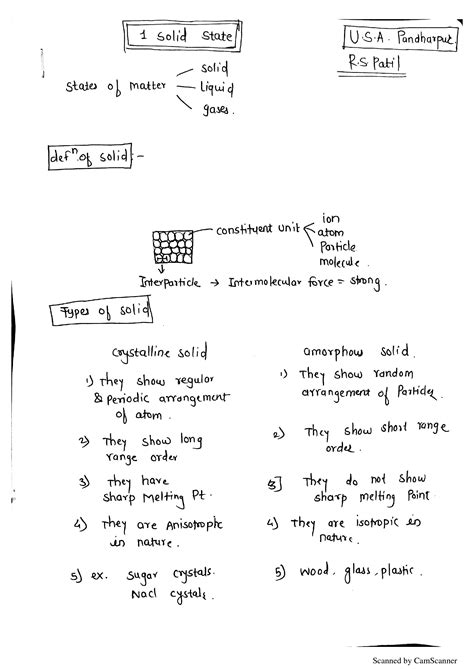 1 Solid State
U.S.A. Pandharpur
R.S Patil
States of matter
solid
liquid
gases.
defn. of solid :-
constituent unit
ion
atom
Particle
molecule.
Interparticle → Intermolecular force = strong.
Types of solid
crystalline solid
1) They show regular
& Periodic arrangement
of atom.
2) They show long
range order
3) They have
sharp Melting Pt.
4) They are Anisotropic
in nature.
5) ex. Sugar crystals.
Nacl cystals.
amorphow solid.
1) They show random
arrangement of Particles.
2) They show short range
order.
3] They do not show
sharp melting Point.
4) They are isotropic in
nature.
5) wood, glass, plastic.
Scanned by CamScanner